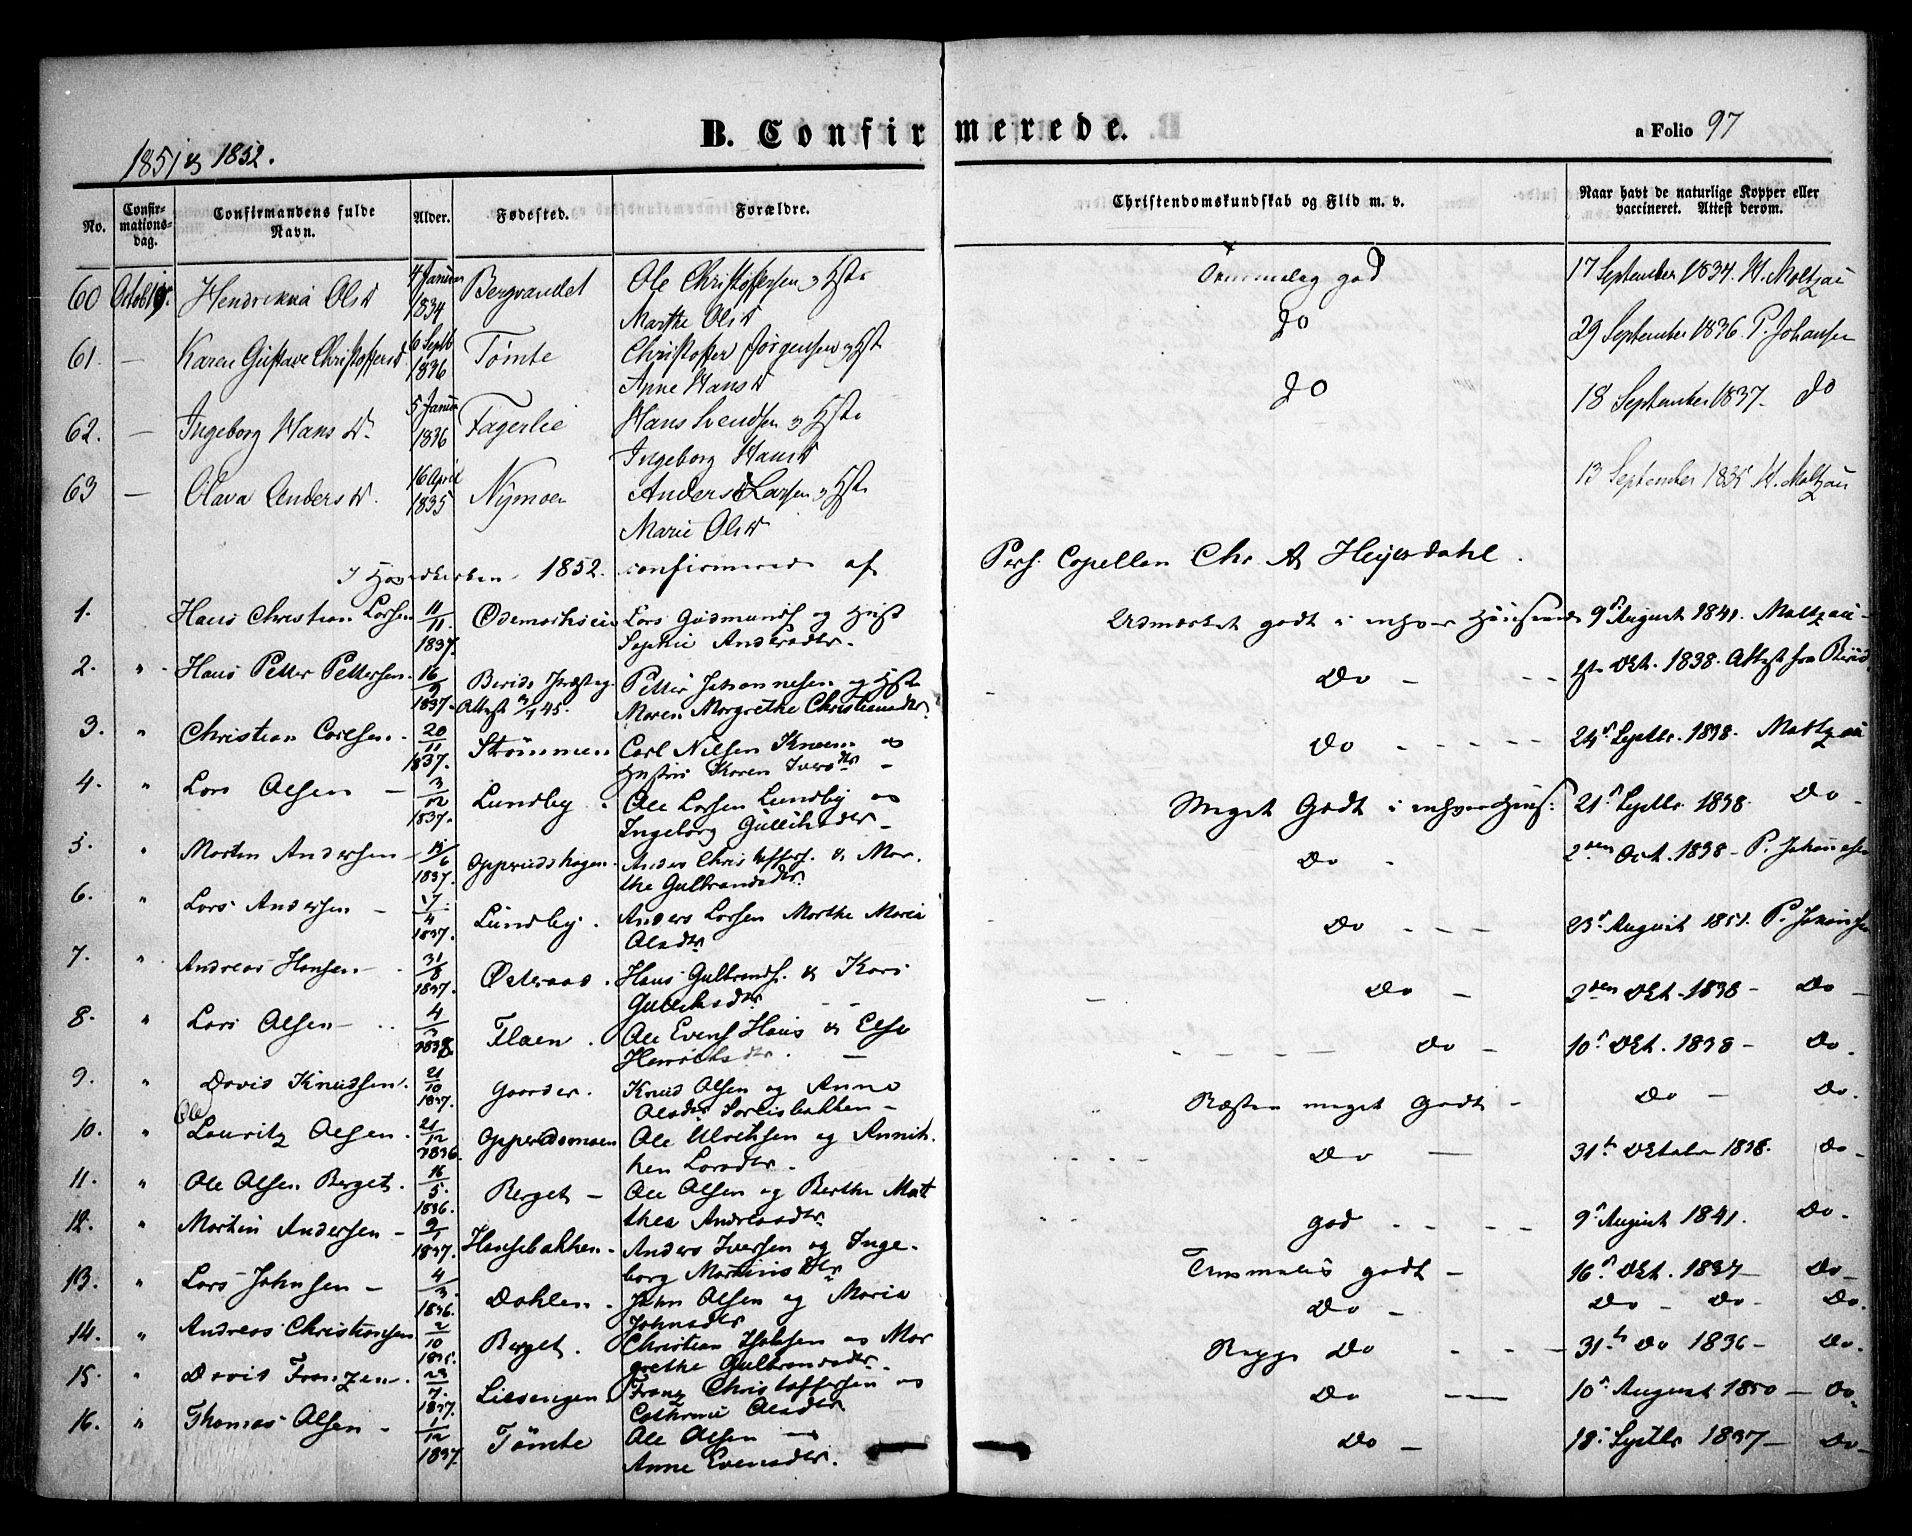 B. Confirmerede.
a Folio 97
1851 & 1852.
No.
Confirmations-dag.
Confirmandens fulde Navn.
Alder.
Fødested.
Forældre.
Christendomskundskab og Flid m. v.
Naar havt de naturlige Kopper eller vaccineret. Attest derom.
60 Hendrikka Olsd 4 Januar 1834 Bergvandet Ole Christoffersen Marthe Olsd god 17 September 1834. Moltzau
61. — Karen Gustave Christoffersd 6 Septb 1836 Tømte Christoffer Jørgensen Anne Hansd do 29 September 1836 P. Johansen
62. — Ingeborg Hans D. 5 Januar 1836 Fagerlie Hans Svendsen Ingeborg Hansd do 18 September 1837. do
63 — Olava Andersd. 16 April 1835 Nymoen Anders Larsen Marie Olsd 13 September 1835 Moltzau
1852. confirmerede af Pers. Capellan Chr. A. Heyerdahl.
1. Hans Christian Larsen 11/11 1837. Lars Gudmunds. og Sophie Andersdtr. Udmærket godt i enhver 9d August 1841. Moltzau
2. " Hans Petter Pettersen 16/9 1837. Attest 45. Petter Johannesen og Maren Margrethe Christiansdtr. Do Oct. 1838. Attest fra Birid
3. " Christian Carlsen 20/11 1837. Strømmen Carl Nilsen og Karen Iversdtr Do 24d Septbr. 1838. Moltzau
4. " Lars Olsen — 3/12 1837. Lundby. Ole Larsen Lundby og Ingeborg Gulliksdtr. Meget Godt i enhver 21d Septbr 1838. Do
5. " Martin Andersen 15/6 1837. Opperudshagen Anders Christoffers. & Marthe Gulbrandsdtr. Do 2den Oct. 1838 P. Johannesen
6. " Lars Andersen — 17/4 1837. Lundby. Anders Larsen Marthe Maria Olsdtr Do 23d August 1851. P. Johansen
7. " Andreas Hansen — 31/8 1837. Østeraas. Hans Gulbrands. & Kari Gulliksdtr Do 2den Oct. 1838 — Do
8. " Lars Olsen — 4/3 1838 Flaen. Ole Evens & Else Henriksdtr. Do 10d Oct. 1838 — Do.
9. " David Knudsen. 21/10 1837. Gaarder. Knud Olsen og Anne Olsdtr Næsten meget Godt — Do — Do.
10. " Ole Lauritz Olsen. 21/12 1836. Opperudsmoen Ole Ulrichsen og Annikken Larsdtr. Do 31te October 1838. Do
11. " Ole Olsen Berget. 16/5 1836. Berget — Ole Olsen og Berthe Mathea Andreasdtr. god 9d August 1841. Do.
12. " Martin Andersen — 9/1 1837. Hansebakken. Anders Iversen og Ingeborg Martinis Dtr Temmelig godt — 16d Oct. 1837 — Do
13. " Lars Johnsen — 4/3 1836. Dahlen. John Olsen og Maria Johnsdtr Do — Do — Do — Do.
14. " Andreas Christiansen 2/10 Berget. Christian og Margrethe Gulbrandsdtr. Do 31te Do 1836 — Do.
15. " David Franzen 23/7 1837. Liesengen Franz Christoffersen og Cathrine Olsdtr Do 10d August 1850 — Do
16. " Thomas Olsen — 1/12 1837. Tømte Ole Olsen Anne Evensdtr. Do — 18d Septbr 1837 — Do